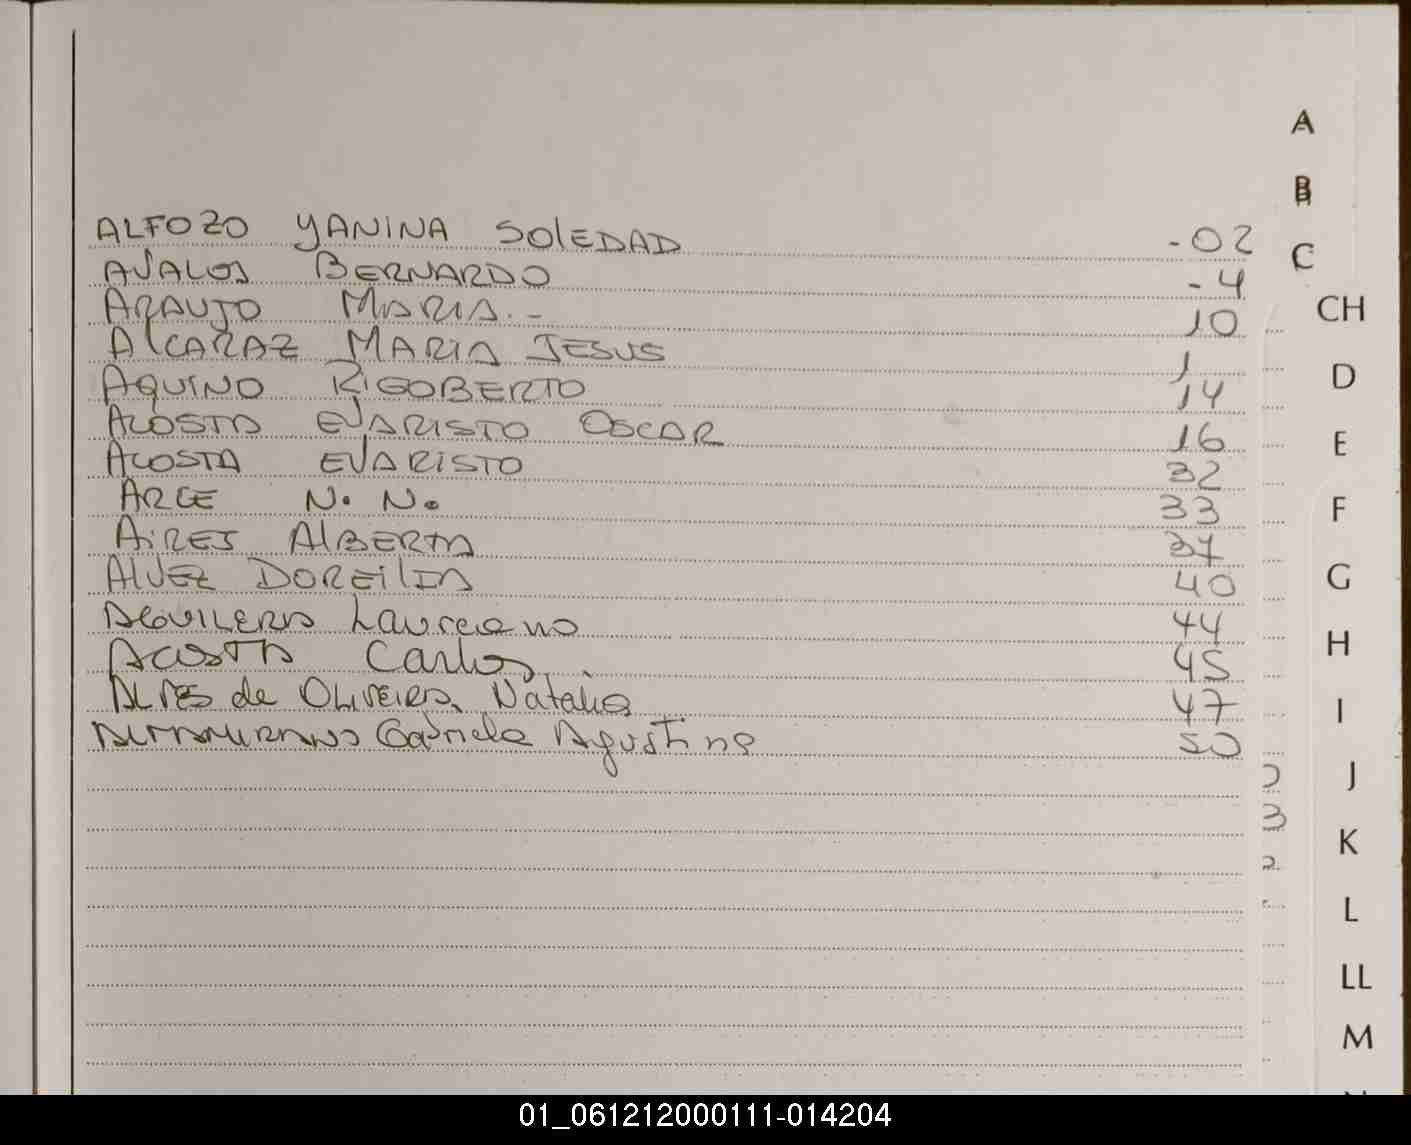 ALFOZO YANINA SOlEDAD -02
AVALOS BERNARDO -4
ARAUJO MARIA.- 10
AlCARAZ MARIA JESUS 1
AQUINO RIGOBERTO 14
ACOSTA EVARISTO OSCAR 16
ACOSTA EVARISTO 32
ARCE N. N. 33
AiRES AlBERTA 37
AlVEZ DOREilIA 40
AGUILERA Laureano 44
ACOSTA Carlos 45
ALVES de OLIVEIRA Natalia 47
ALTAMIRANO Gabriela Agustina 50
A
B
C
CH
D
E
F
G
H
I
J
K
L
LL
M
3
2
01_061212000111-014204